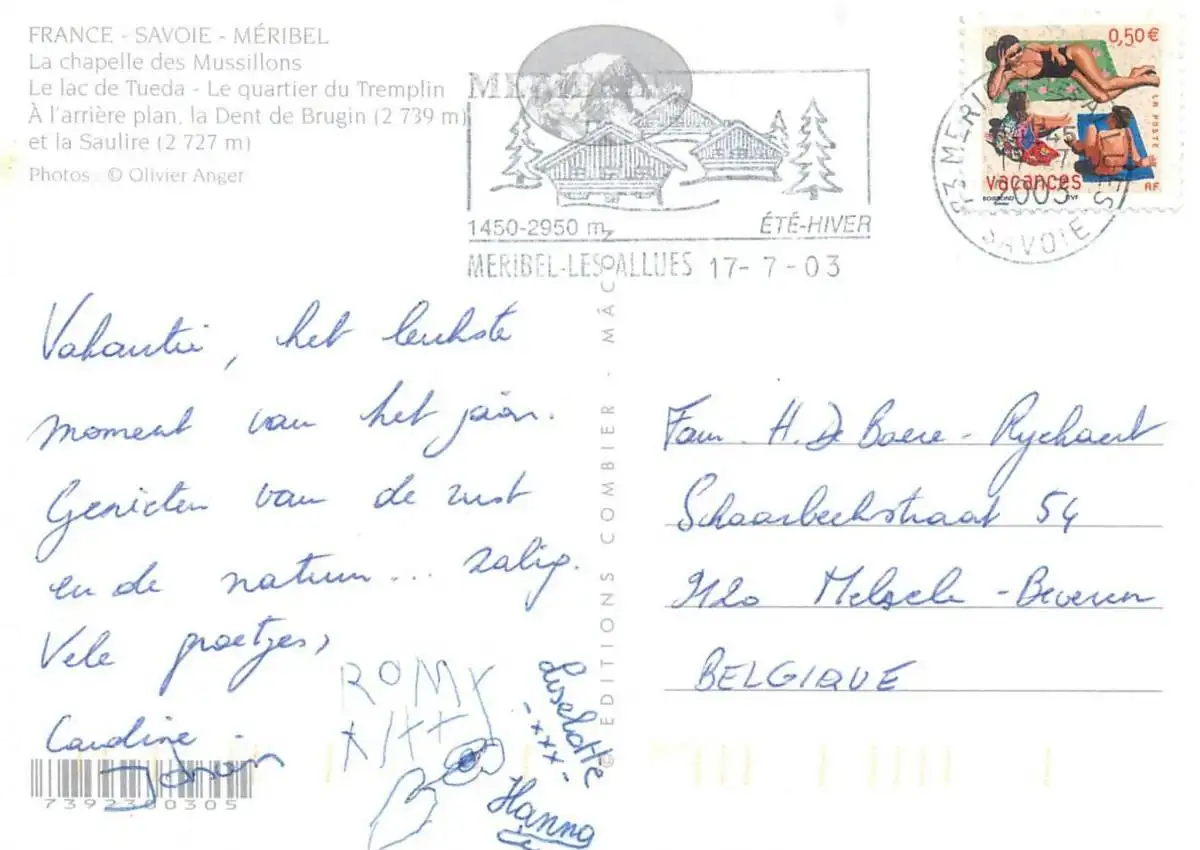 FRANCE - SAVOIE - MÉRIBEL
La chapelle des Mussillons
Le lac de Tueda - Le quartier du Tremplin
À l'arrière plan, la Dent de Brugin (2 739 m)
et la Saulire (2 727 m)
Photos : © Olivier Anger
1450-2950 m
ÉTÉ-HIVER
MERIBEL-LES ALLUES 17-7-03
0,50 €
LA POSTE
vacances
RF
73 MERIBEL
2003
SAVOIE
Vakantie, het leukste
moment van het jaar.
Genieten van de rust
en de natuur... zalig.
Vele groetjes,
Caroline
Johan
ROMY
Liselotte
-xxx-
Hanna
© EDITIONS COMBIER - MÂCON
Fam. H. De Baere - Rychaert
Schaarbeekstraat 54
9120 Melsele - Beveren
BELGIQUE
7392300305